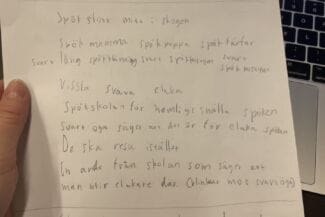 Spöt slott mitt i skogen
Spök mamma spökpappa spök färfar
Svart lång spökklänning svart spökkostym svart
spök
Vissla svara elaka
Spökskolan för hemligt snälla spöken
Svart öga säger att det är för elaka spöken
De ska resa istället
En ande från skolan som säger att
man blir elakare där. (blinkar mot svartöga)